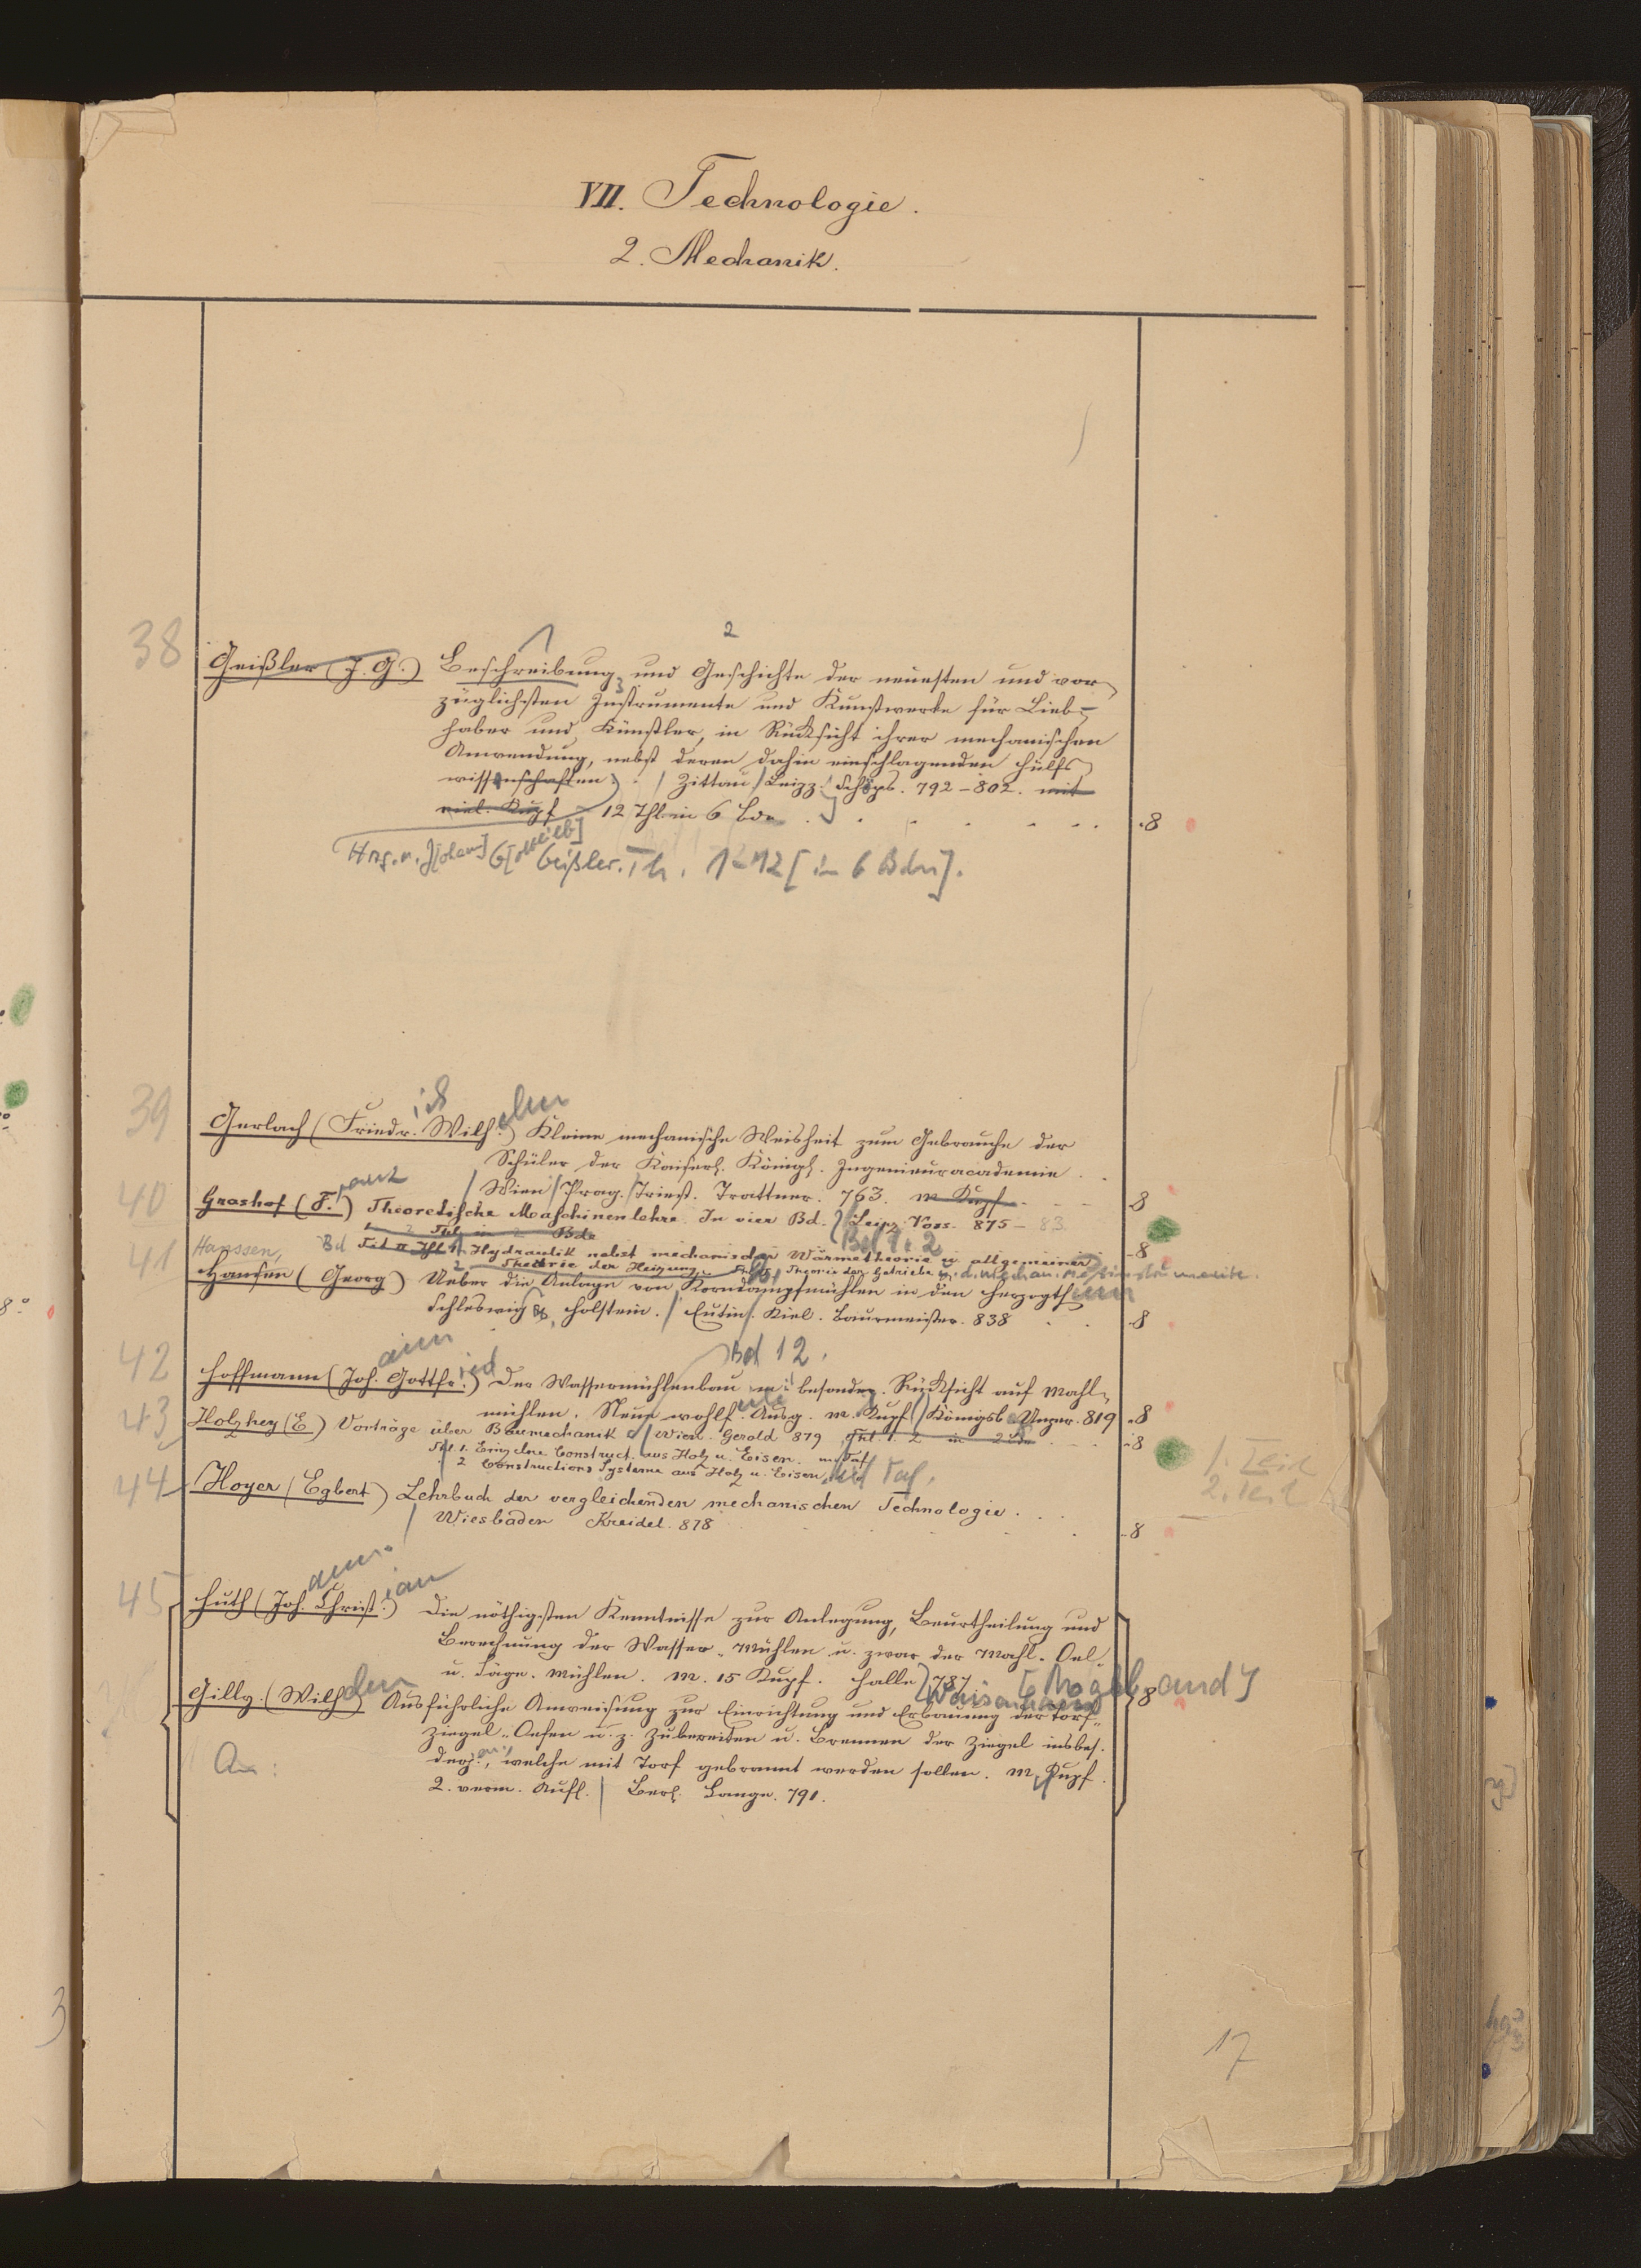 VII. Technologie.
2. Mechanik.
38
2
Geißler (J. G.) Beschreibung und Geschichte der neuesten und vor
züglichsten Instrumente und Kunstwerke für Lieb-
haber und Künstler, in Rücksicht ihrer mechanischen
Anwendung, nebst deren dahin einschlagenden Hülfs
wissenschaften. / Zittau / Leipz. Schöps. 792-802. mit
viel. Kupf 12 Thl in 6 Bde . . . . . . 8
Hrs. v. J[ohann] G[ottlieb] Geißler. Th. 1-12 [in 6 Bdn].
39
ich elm
Gerlach (Friedr. Wilh.) Kleine mechanische Weisheit zum Gebrauche der
Schüler der Kaiserl. Königl. Ingenieuracademie . .
/ Wien / Prag. / Triest. Trattner. 763. m Kupf . . . 8
40
ranz
Grashof (F.) Theoretische Maschinenlehre. In vier Bd. Leipz. Voss. 875-83.
Bd 1. 2
Hydraulik nebst mechanischer Wärmetheorie u. allgemeiner 8
2 Theorie der Heizung. Theorie der Getriebe u. d. mechan. Meßinstrumente.
41 Hanssen,
Hansen (Georg) Ueber die Anlage von Korndampfmühlen in den Herzogthümern
Schleswig u. Holstein. / Eutin / Kiel. Baurmeister. 838 . . 8
42
ann ied Bd 1 2.
Hoffmann (Joh. Gottfr.) Der Wassermühlenbau mit besonder. Rücksicht auf Mahl-
mühlen. Neue wohlf. Ausg. m. Kupf / Königsb. Unzer. 819 8
43
Holzhey (E) Vorträge über Baumechanik / Wien Gerold 879 Thl 1. 2 in 2 Bde . . . 8
Thl 1. Einzelne Construct. aus Holz u. Eisen. m. Taf
2 Constructions Systeme aus Holz u. Eisen, mit Taf.
1. Teil
2. Teil
44
Hoyer (Egbert) Lehrbuch der vergleichenden mechanischen Technologie . . .
/ Wiesbaden Kreidel. 878 . . . . . 8
45
ann. ian
Huth (Joh. Christ.) Die nöthigsten Kenntnisse zur Anlegung, Beurtheilung und
Berechnung der Wasser-Mühlen u. zwar der Mahl- Oel-
u. Säge-Mühlen. M. 15 Kupf. Halle 787
Waisenhaus
Gilly (Wilhelm) Ausführliche Anweisung zur Einrichtung und Erbauung der Torf- 8
Ziegel-Oefen u. z. Zubereiten u. Brennen der Ziegel insbes.
An:
derj., welche mit Torf gebrannt werden sollen. M. Kupf.
2. verm. Aufl. / Berl. Lange. 791.
17
3